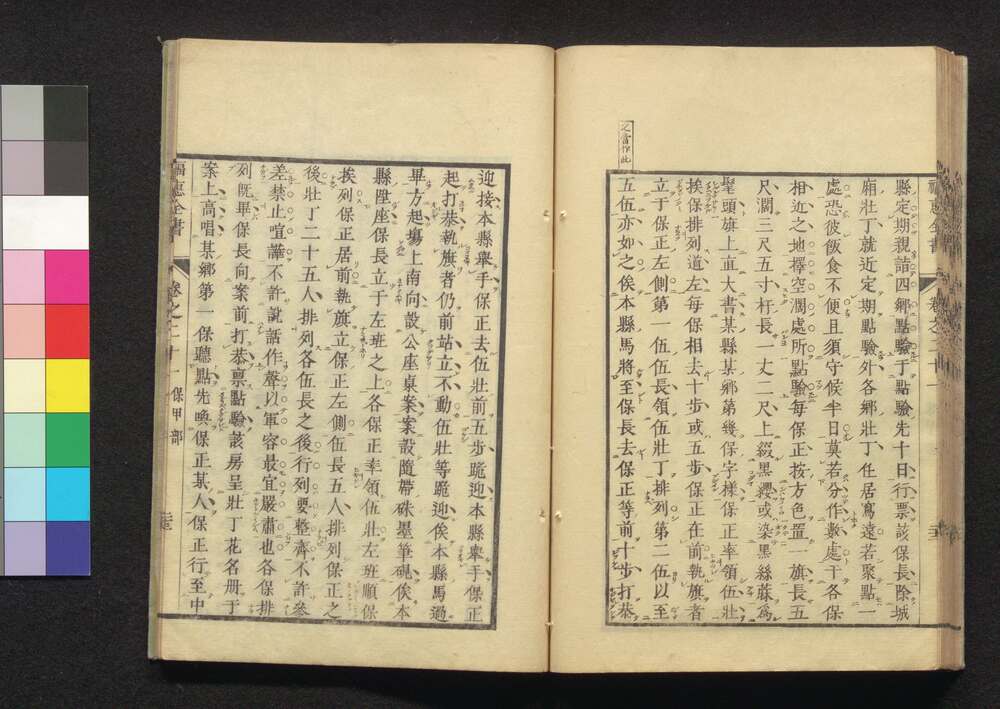 之當作此
縣定期親詣四鄉點驗于點驗先十日行票該保長除城
廂壯丁就近定期點驗外各鄉壯丁住居寫遠若聚點一
處恐彼飯食不便且須守候半日莫若分作數處于各保
相近之地擇空濶處所點驗每保正按方色置一旗長五
尺濶三尺五寸杆長一丈二尺上綴黑纓或染黑絲蔴爲
髦頭旗上直大書某縣某鄉第幾保字樣保正率領伍壯
挨保排列道左每保相去十步或五步保正在前執旗者
立于保正左側第一伍伍長領伍壯丁排列第二伍以至
五伍亦如之俟本縣馬將至保長去保正等前十步打恭
迎接本縣舉手保正去伍壯前五步跪迎本縣舉手保正
起打恭執旗者仍前站立不動伍壯等跪迎俟本縣馬過
畢方起塲上南向設公座桌案案設隨帶硃墨筆硯俟本
縣陞座保長立于左班之上各保正率領伍壯左班順保
挨列保正居前執旗立保正左側伍長五人排列保正之
後壯丁二十五人排列各伍長之後行列要整齊不許參
差禁止喧譁不許說話作聲以軍容最宜嚴肅也各保排
列既畢保長向案前打恭稟點驗該房呈壯丁花名册于
案上高唱某鄉第一保聽點先喚保正某人保正行至中
福惠全書 卷之二十一 保甲部